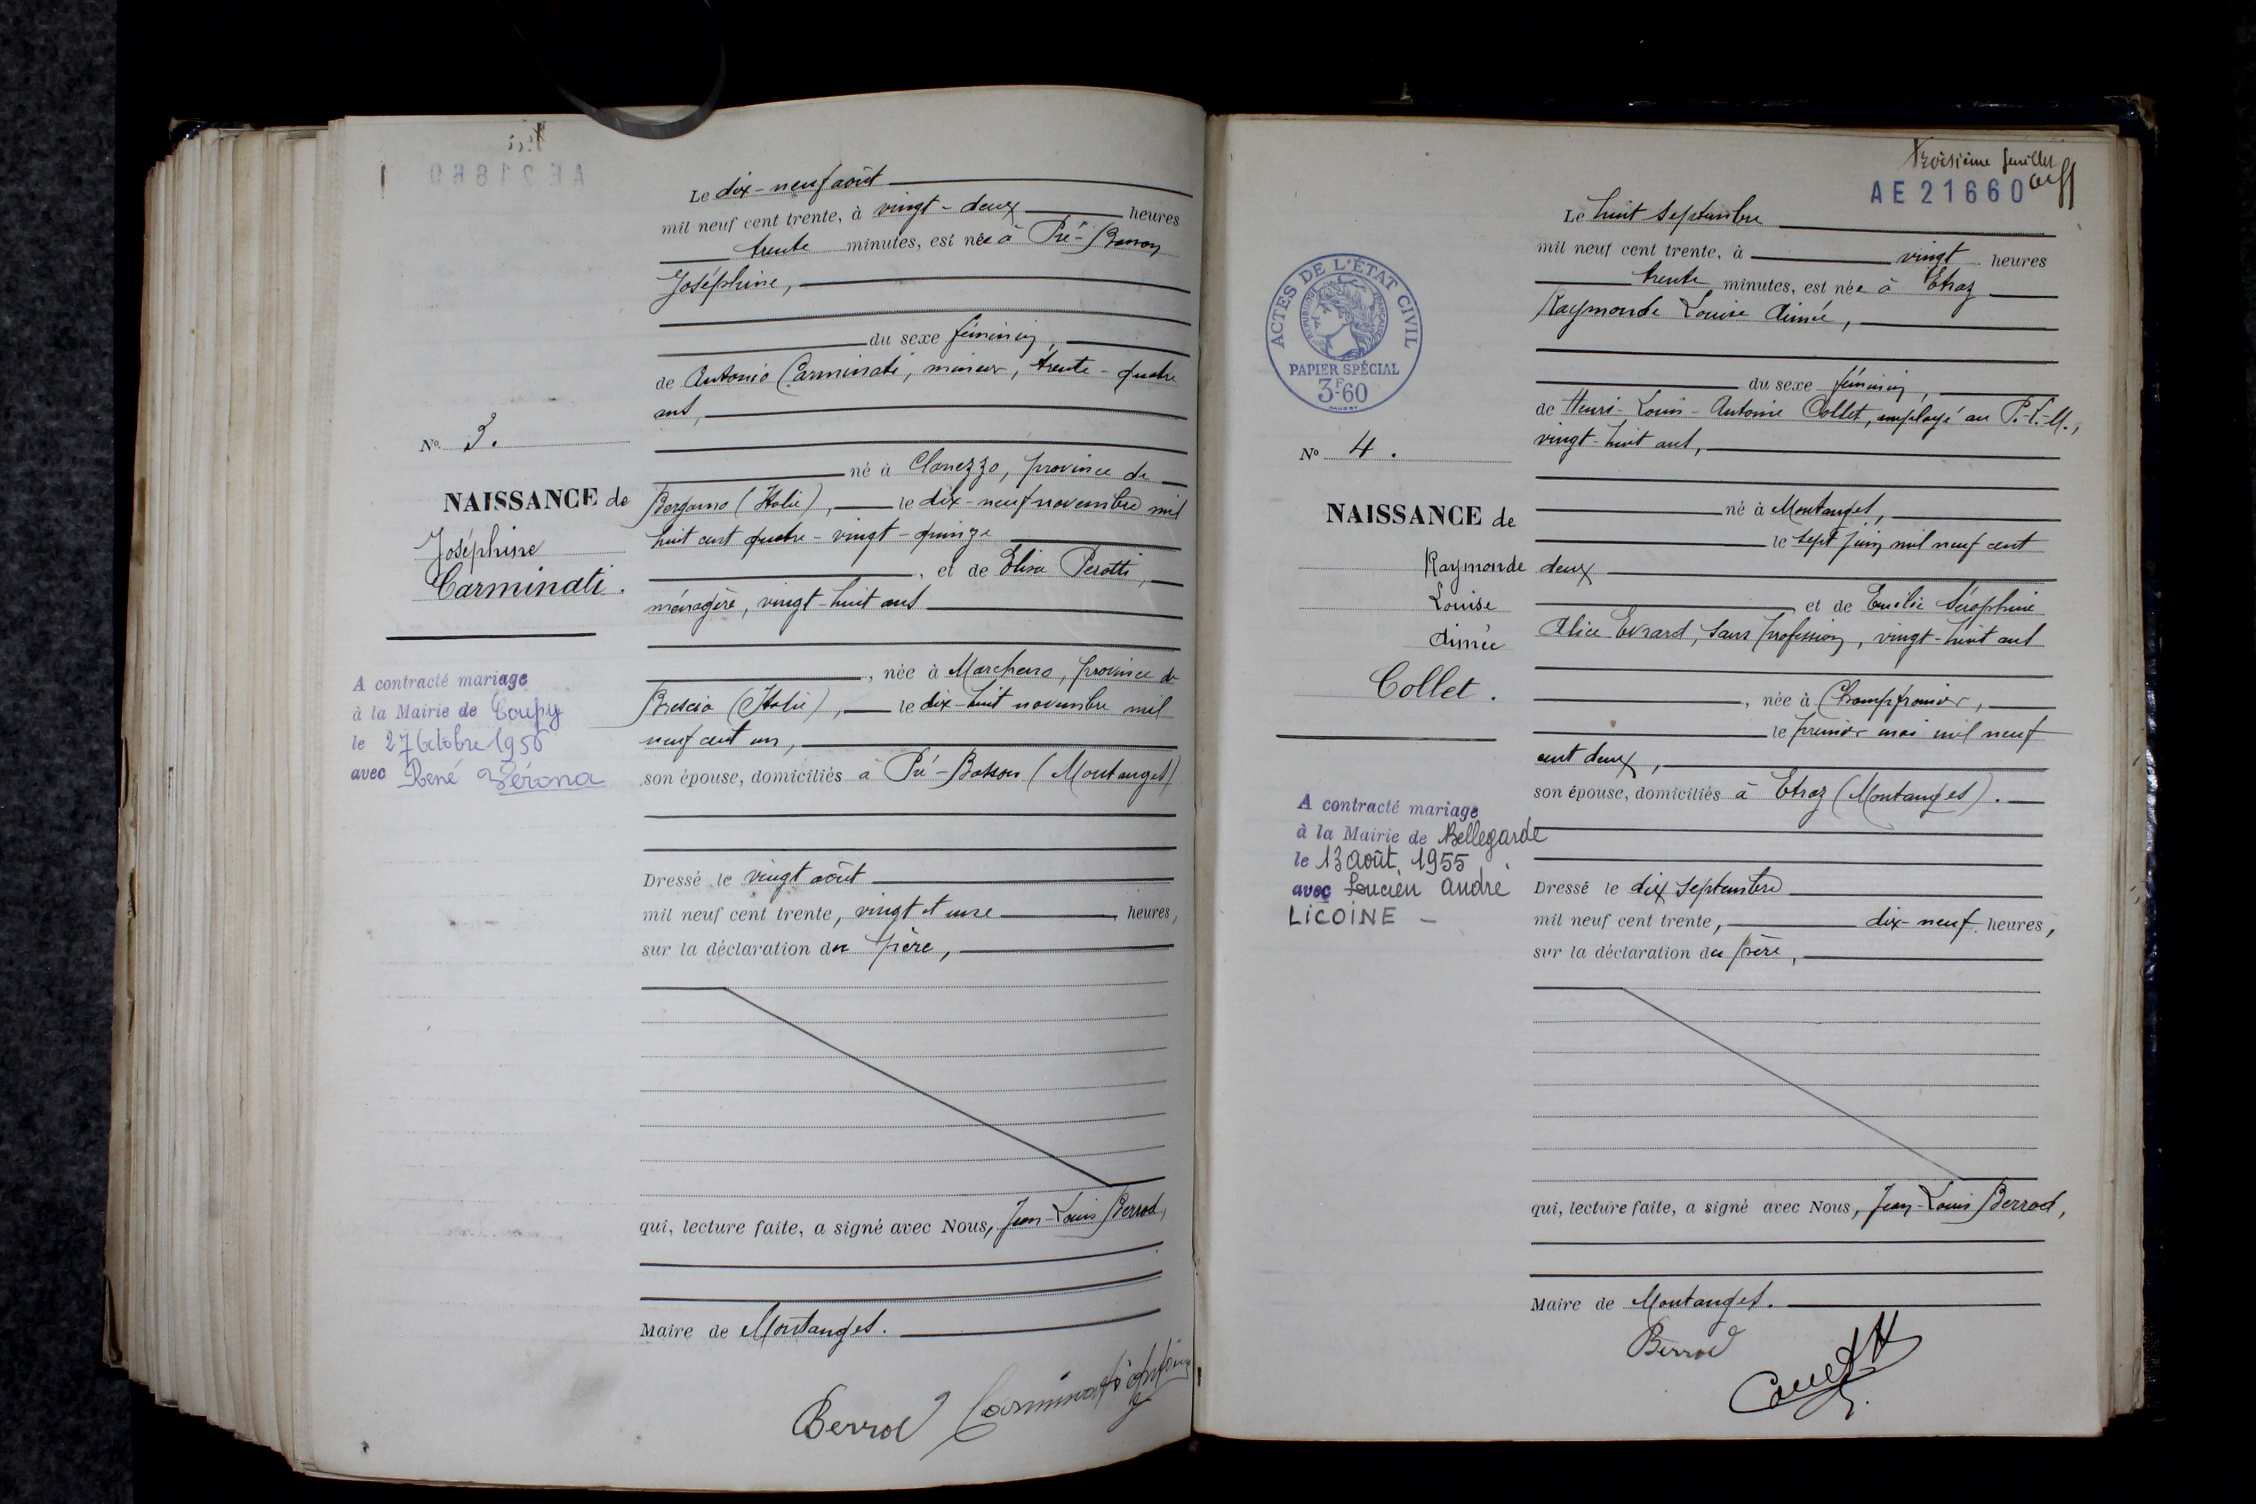 Le dix-neuf août
mil neuf cent trente, à vingt-deux heures
trente minutes, est née à Pré-Basson
Joséphine,
du sexe féminin,
de Antonio Carminati, mineur, trente-quatre
ans,
né à Clanezzo, province de
Bergamo (Italie), le dix-neuf novembre mil
huit cent quatre-vingt-quinze
, et de Elisa Perotti,
ménagère, vingt-huit ans
, née à province de
Brescia (Italie), le dix-huit novembre mil
neuf cent un,
son épouse, domiciliés à Pré-Basson (Montanges)
Dressé le vingt août
mil neuf cent trente, vingt et une heures,
sur la déclaration du père,
qui, lecture faite, a signé avec Nous, Jean-Louis Berrod,
Maire de Montanges.
Berrod Carminati
No 3.
NAISSANCE de
Joséphine
Carminati.
A contracté mariage
à la Mairie de Coupy
le 27 Octobre 1956
avec René Vérona
Troisième feuillet
AE 21660
ACTES DE L'ÉTAT CIVIL
RÉPUBLIQUE FRANÇAISE
PAPIER SPÉCIAL
3F60
No 4.
NAISSANCE de
Raymonde
Louise
Aimée
Collet.
A contracté mariage
à la Mairie de Bellegarde
le 13 août 1955
avec Lucien André
LICOINE —
Le huit septembre
mil neuf cent trente, à vingt heures
trente minutes, est née à Etraz
Raymonde Louise Aimée,
du sexe féminin,
de Henri-Louis-Antoine Collet, employé au P.-L.-M.,
vingt-huit ans,
né à Montanges,
le sept juin mil neuf cent
deux
et de Emélie Séraphine
Alice Evrard, sans profession, vingt-huit ans
, née à Champfromier,
le premier mai mil neuf
cent deux,
son épouse, domiciliés à Etraz (Montanges).
Dressé le dix septembre
mil neuf cent trente, dix-neuf heures,
sur la déclaration du père,
qui, lecture faite, a signé avec Nous, Jean-Louis Berrod,
Maire de Montanges.
Berrod